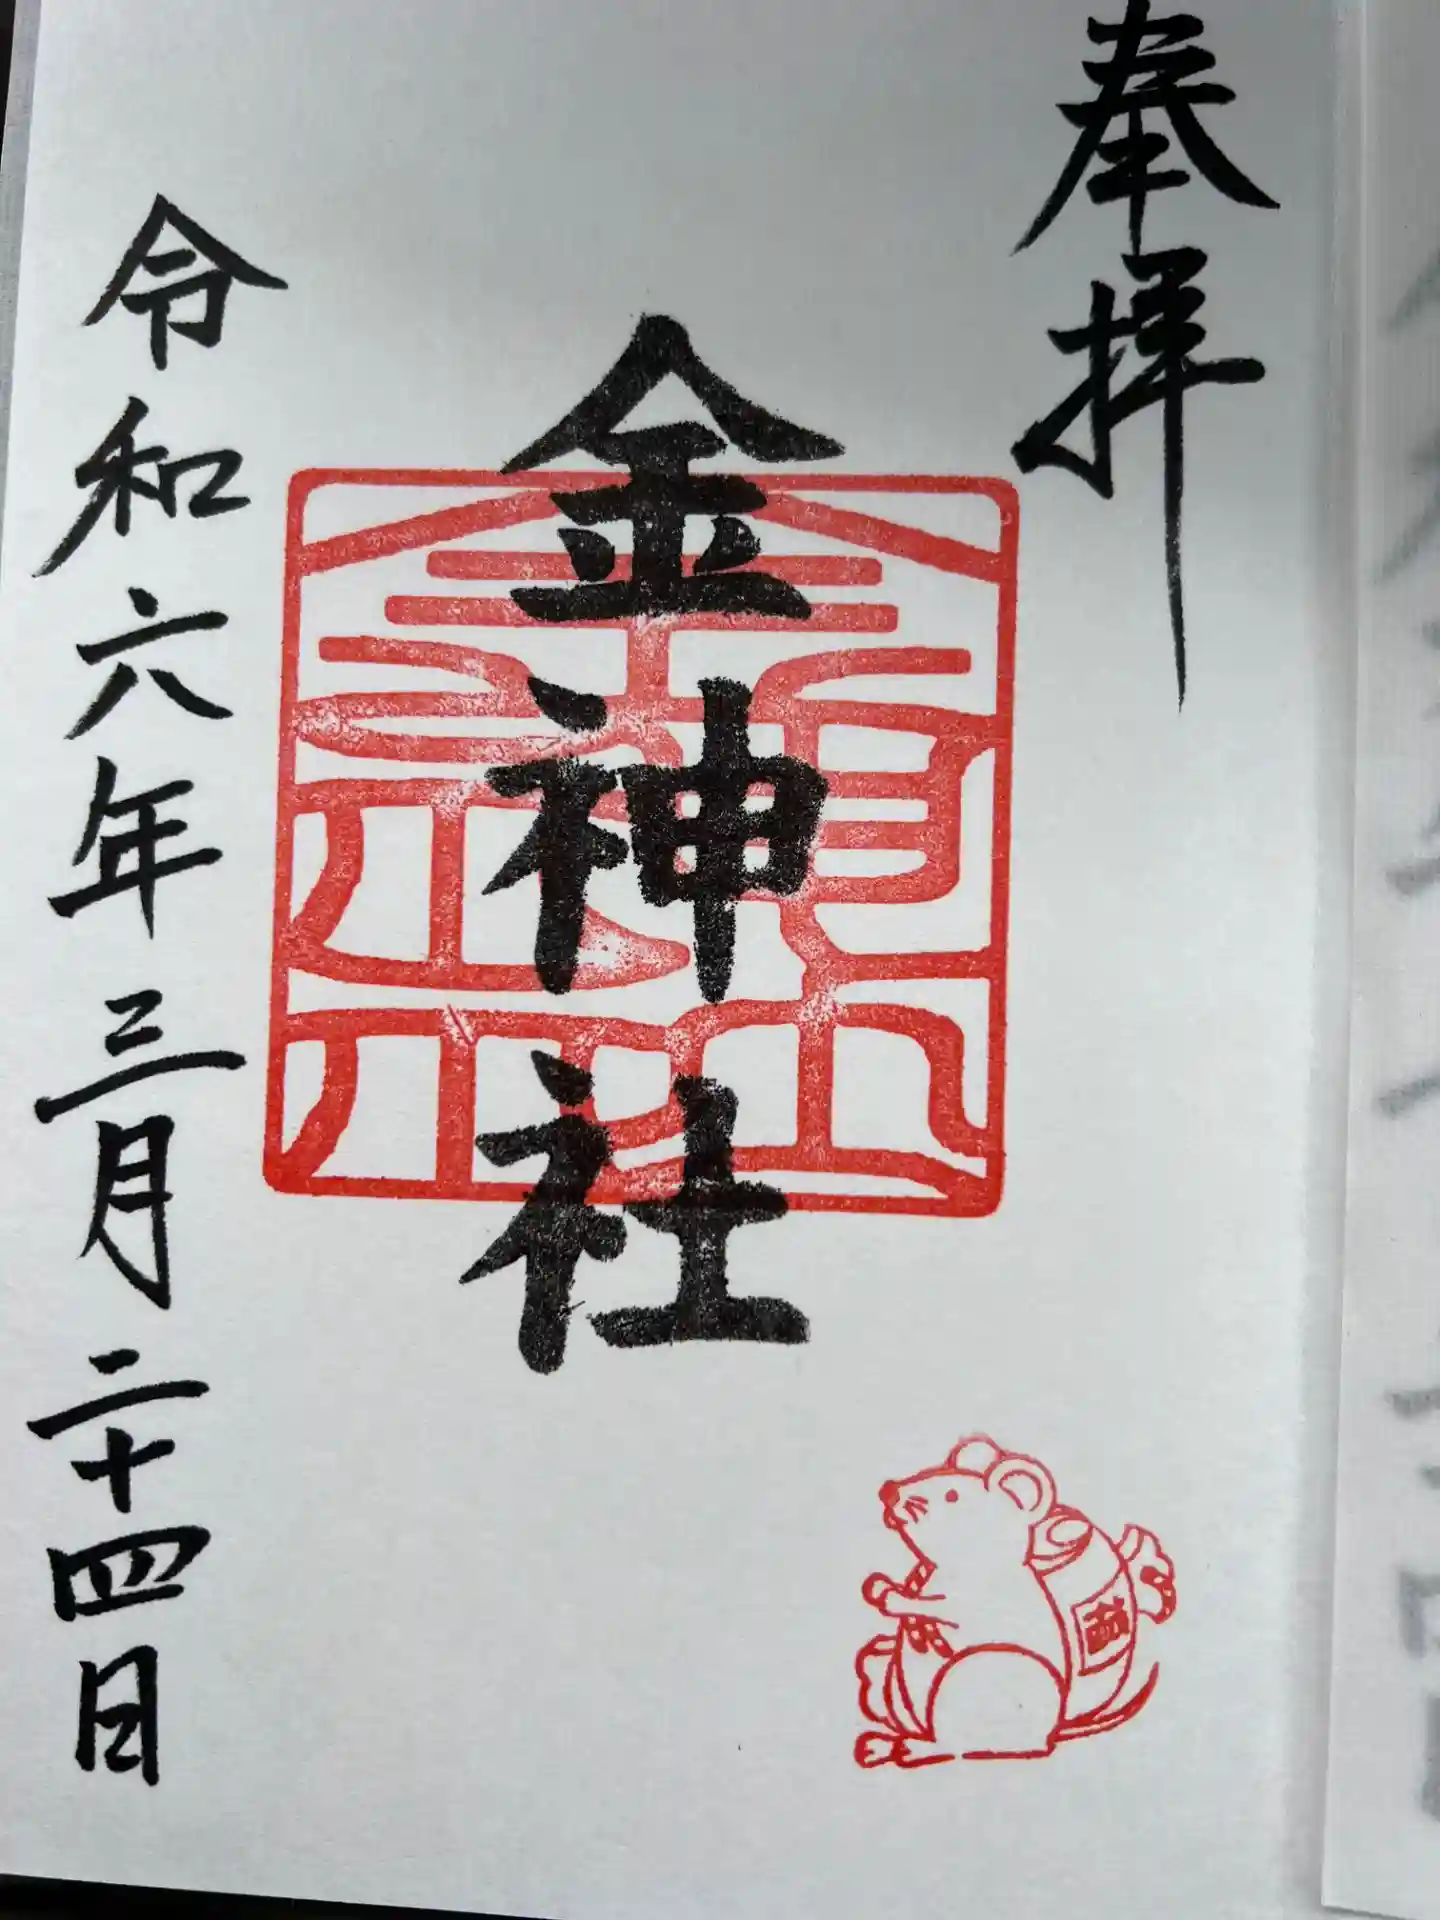 奉拝
金神社
令和六年三月二十四日
福